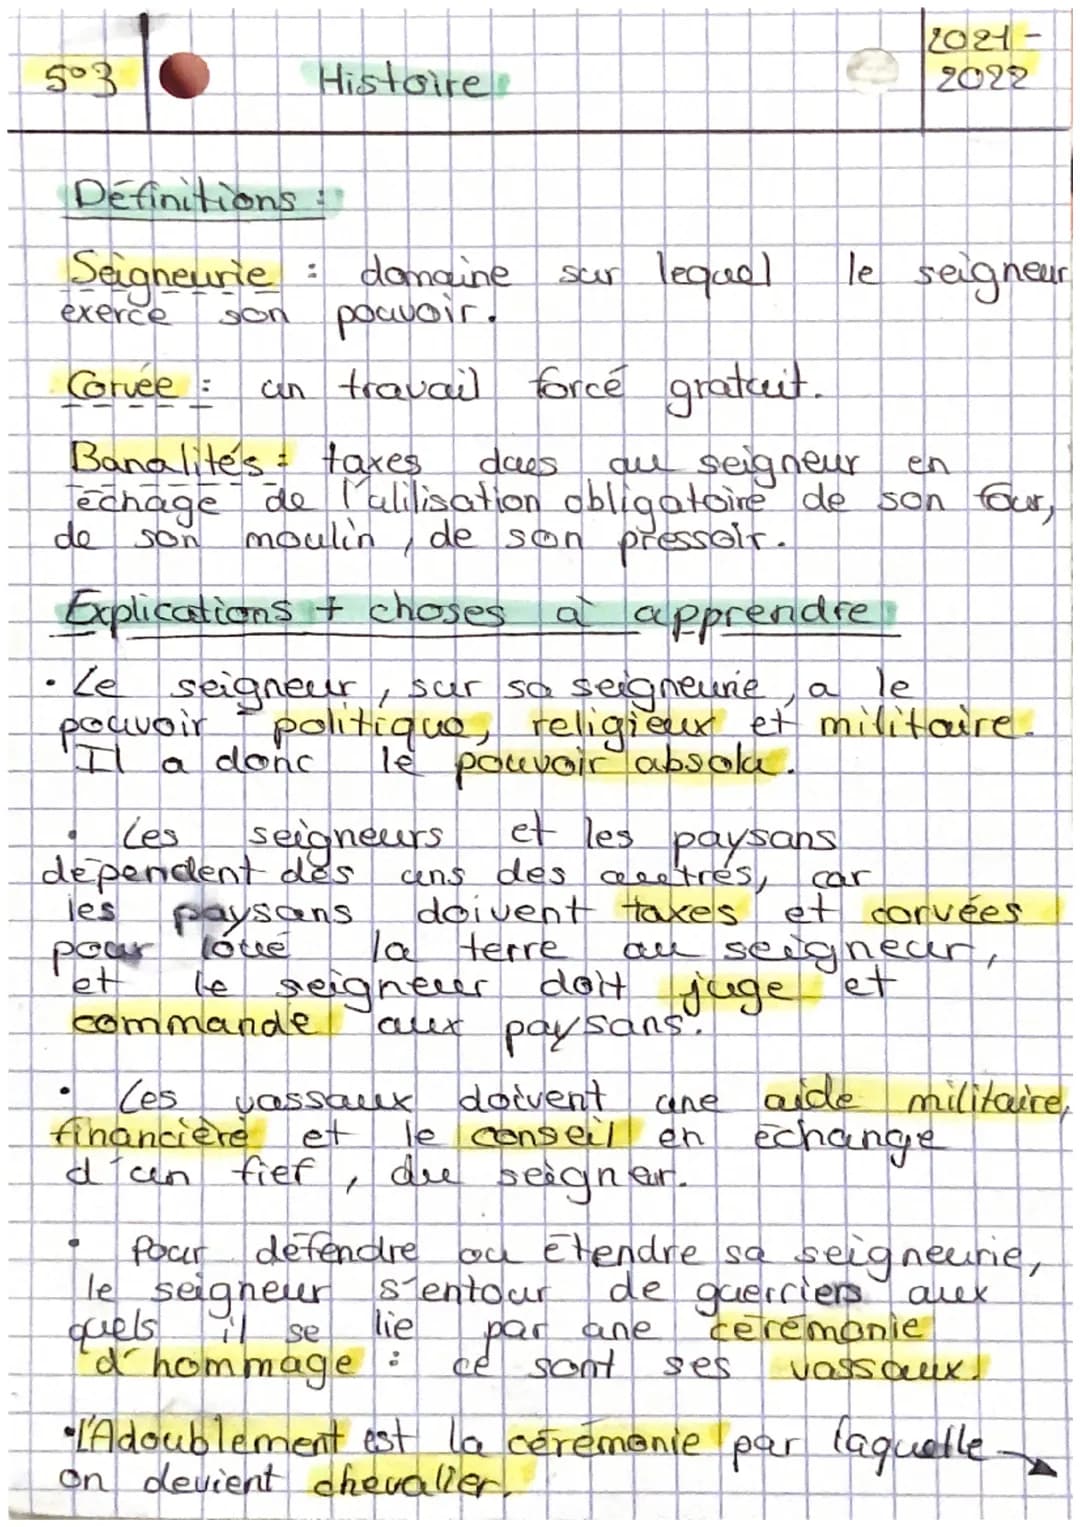 5°3 Histoire 2021-
2022
Définitions :
Seigneurie : domaine sur lequel le seigneur
exerce son pouvoir.
Corvée : un travail forcé gratuit.
Banalités : taxes dues au seigneur en
échage de l'ulilisation obligatoire de son four,
de son moulin, de son pressoir.
Explications + choses à apprendre
• Le seigneur, sur sa seigneurie, a le
pouvoir politique, religieux et militaire.
Il a donc le pouvoir absolu.
• Les seigneurs et les paysans
dépendent des uns des autres, car
les paysans doivent taxes et corvées
pour loué la terre au seigneur,
et le seigneur doit juge et
commande aux paysans.
• Les vassaux doivent une aide militaire,
financière et le conseil en échange
d'un fief, du seigneur.
• Pour défendre ou étendre sa seigneurie,
le seigneur s'entour de guerriers aux
quels il se lie par une cérémonie
d'hommage : ce sont ses vassaux.
• L'Adoublement est la cérémonie par laquelle
on devient chevalier.